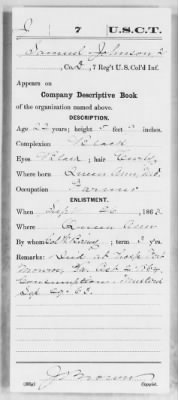 J 7 U.S.C.T.
Samuel Johnson 2
, Co. , 7 Reg't U.S. Col'd Inf.
Appears on
Company Descriptive Book
of the organization named above.
DESCRIPTION.
Age 22 years; height 5 feet inches.
Complexion Black
Eyes Black; hair Curly
Where born Queen Ann, Md.
Occupation Farmer
ENLISTMENT.
When Sept 26, 1863.
Where Queen Ann
By whom Col. ; term 3 y'rs.
Remarks: Died at Hosp
Monroe, Va. 2, 1864
Consumption. Mustered
Sep 29. 63.
J
Copyist.